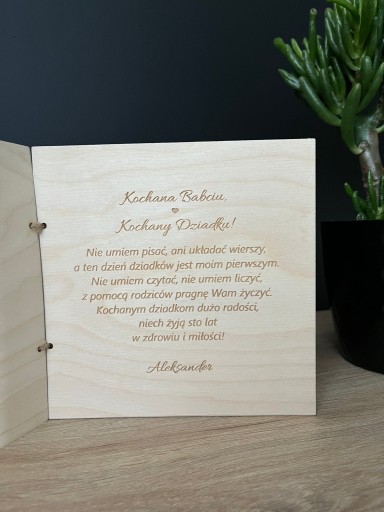 Kochana Babciu,
Kochany Dziadku!
Nie umiem pisać, ani układać wierszy,
a ten dzień dziadków jest moim pierwszym.
Nie umiem czytać, nie umiem liczyć,
z pomocą rodziców pragnę Wam życzyć.
Kochanym dziadkom dużo radości,
niech żyją sto lat
w zdrowiu i miłości!
Aleksander